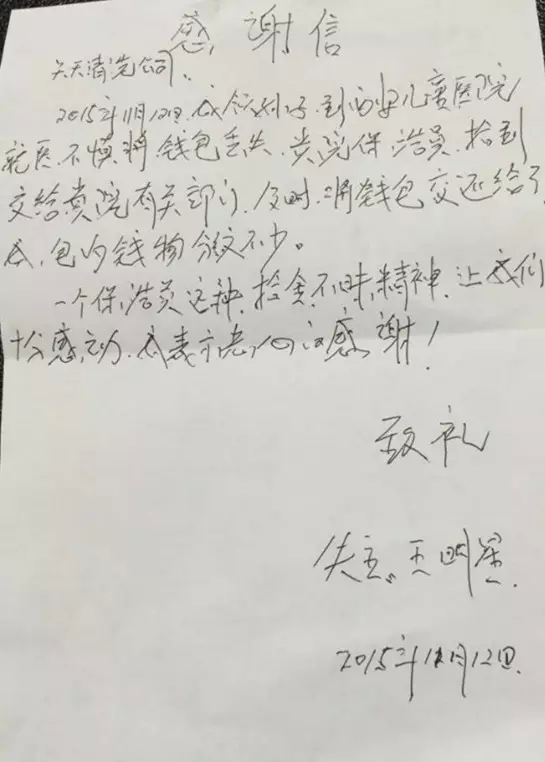 感谢信
关天清洗公司.
2015年11月12日.我领外孙.到西安儿童医院
就医.不慎将.钱包丢失.贵院保洁员.捡到
交给贵院有关部门.及时.将钱包交还给了
我.包内钱物分纹不少。
一个保洁员这种.拾金不昧精神.让我们
十分感动.我表示衷心的感谢!
致礼
失主:王明星.
2015年11月12日.